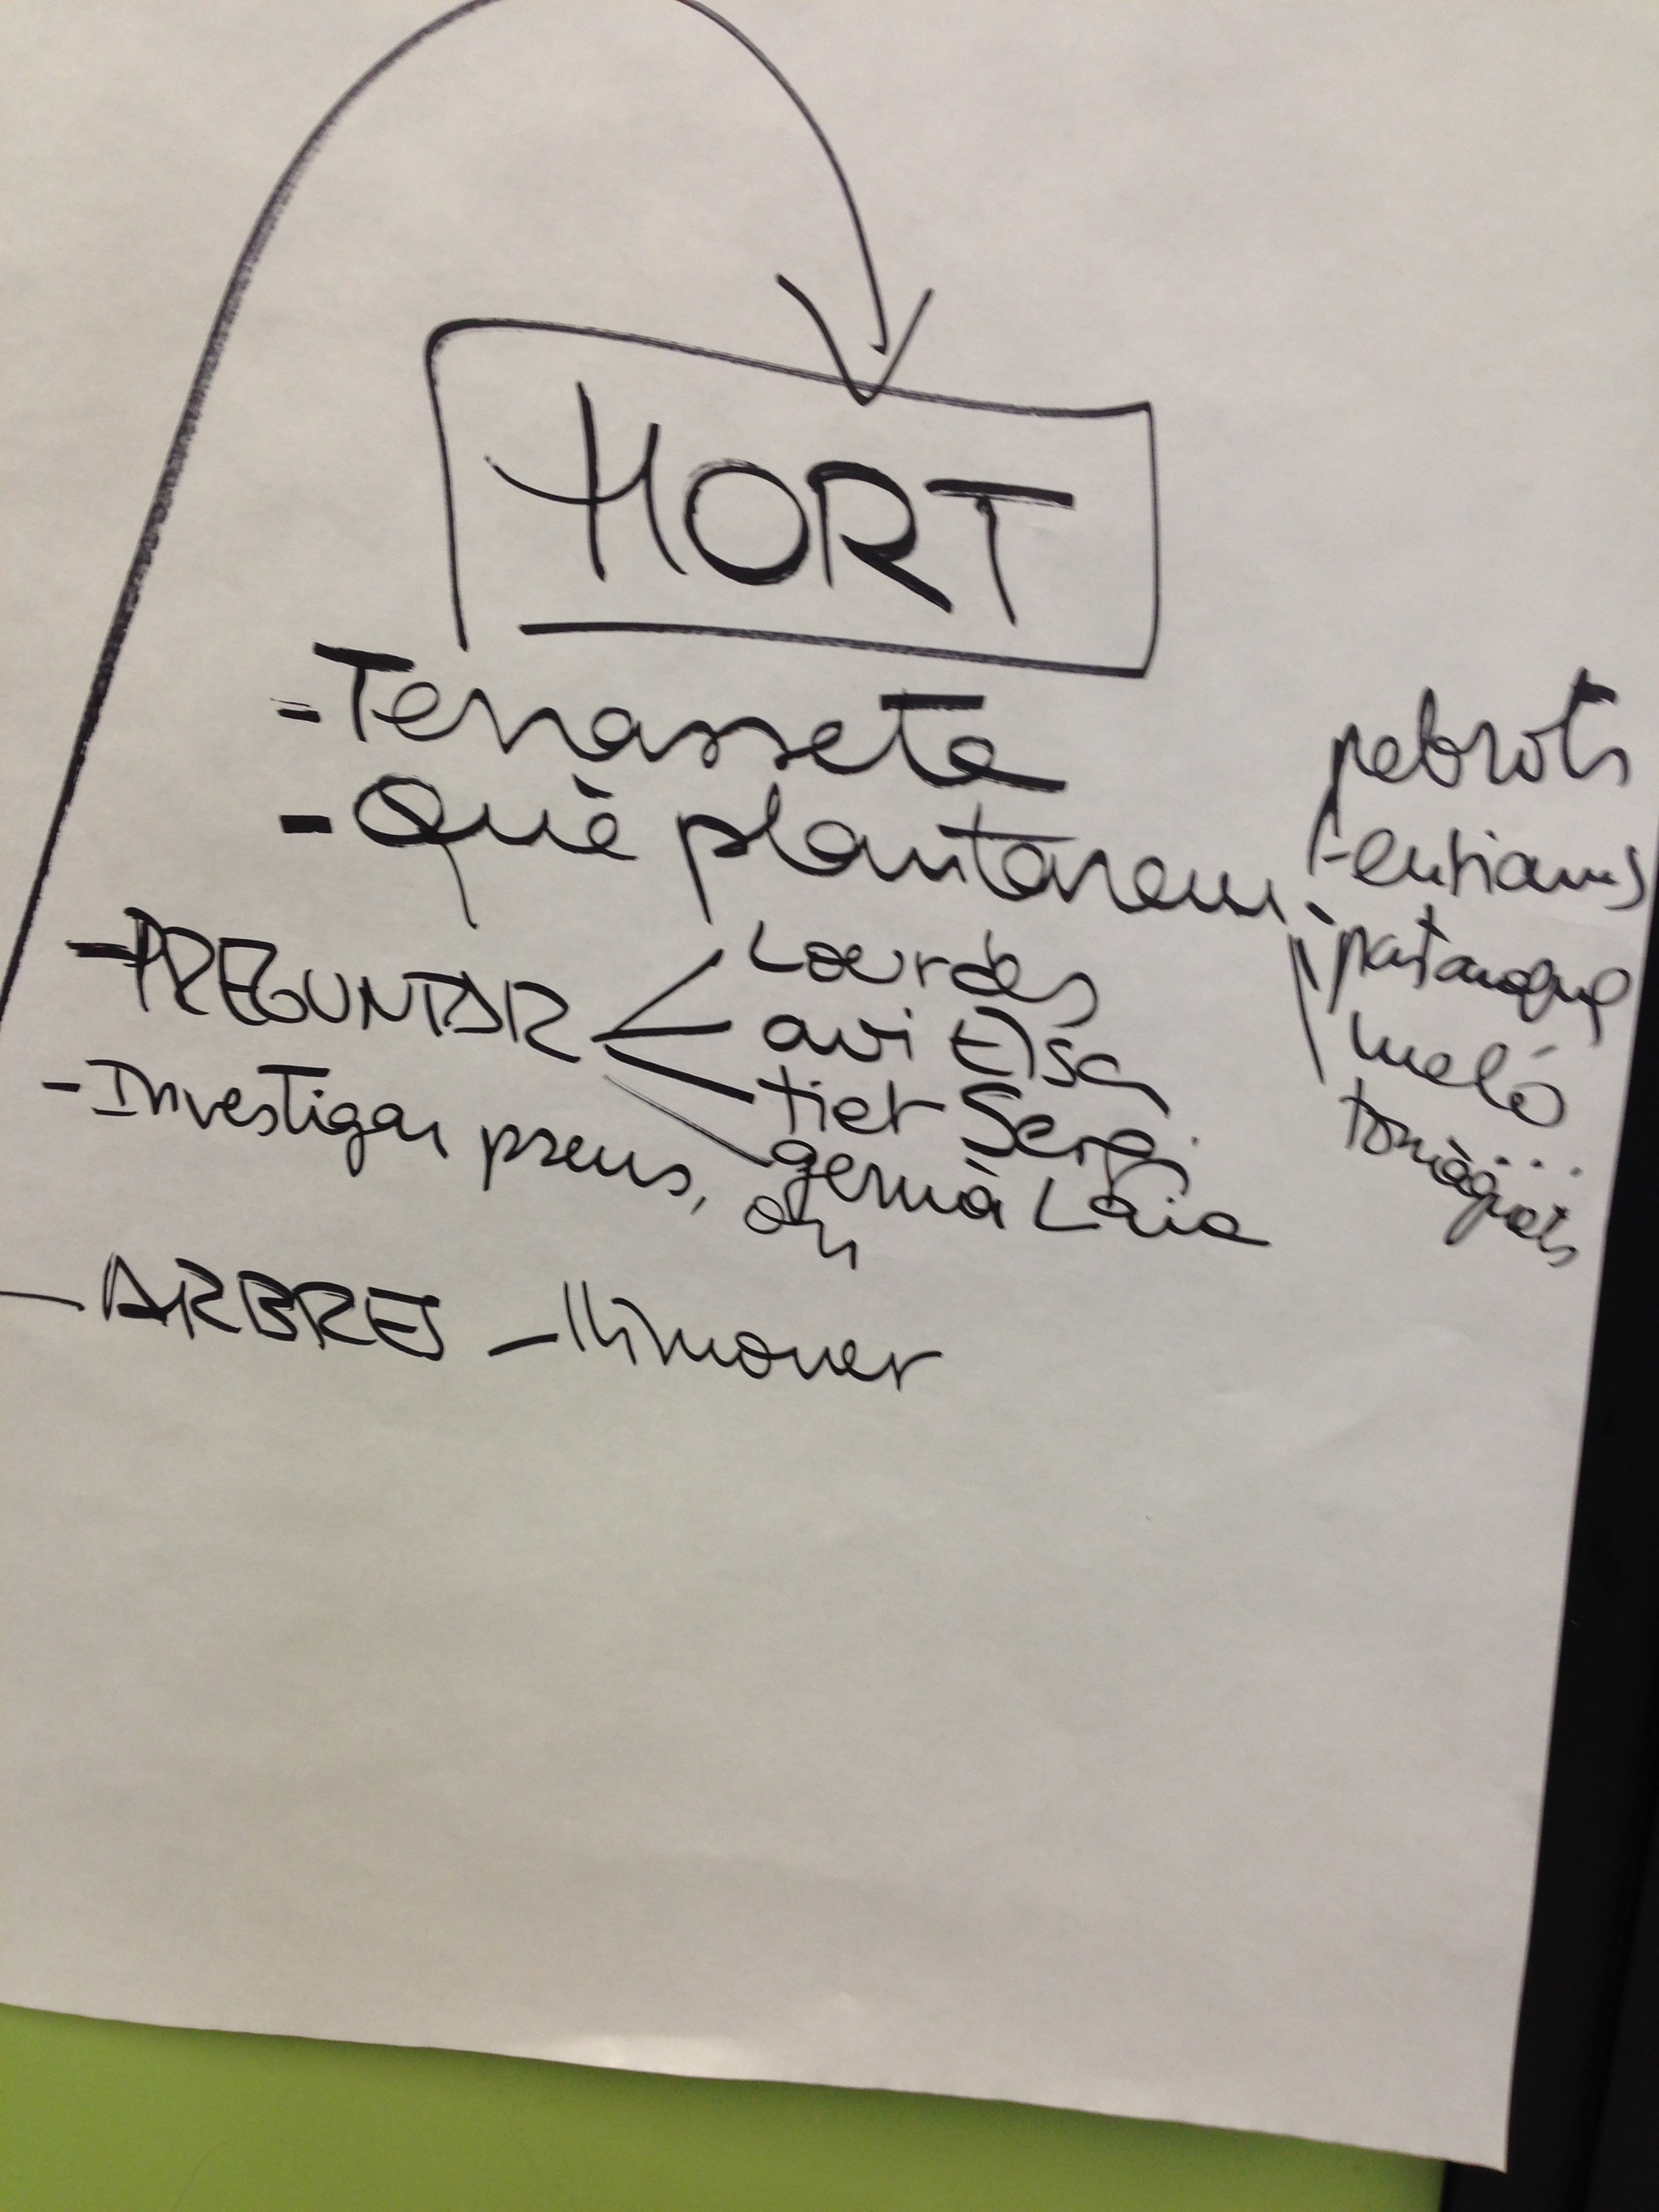 HORT
- Terrasseta
- Què plantarem:
pebrots
enciams
pastanague
meló
...
tomàquets
- PREGUNTAR
Lourdes
avi Elsa
tiet Sergi
germà Laia
- Investigar preus, on
- ARBRES - llimoner